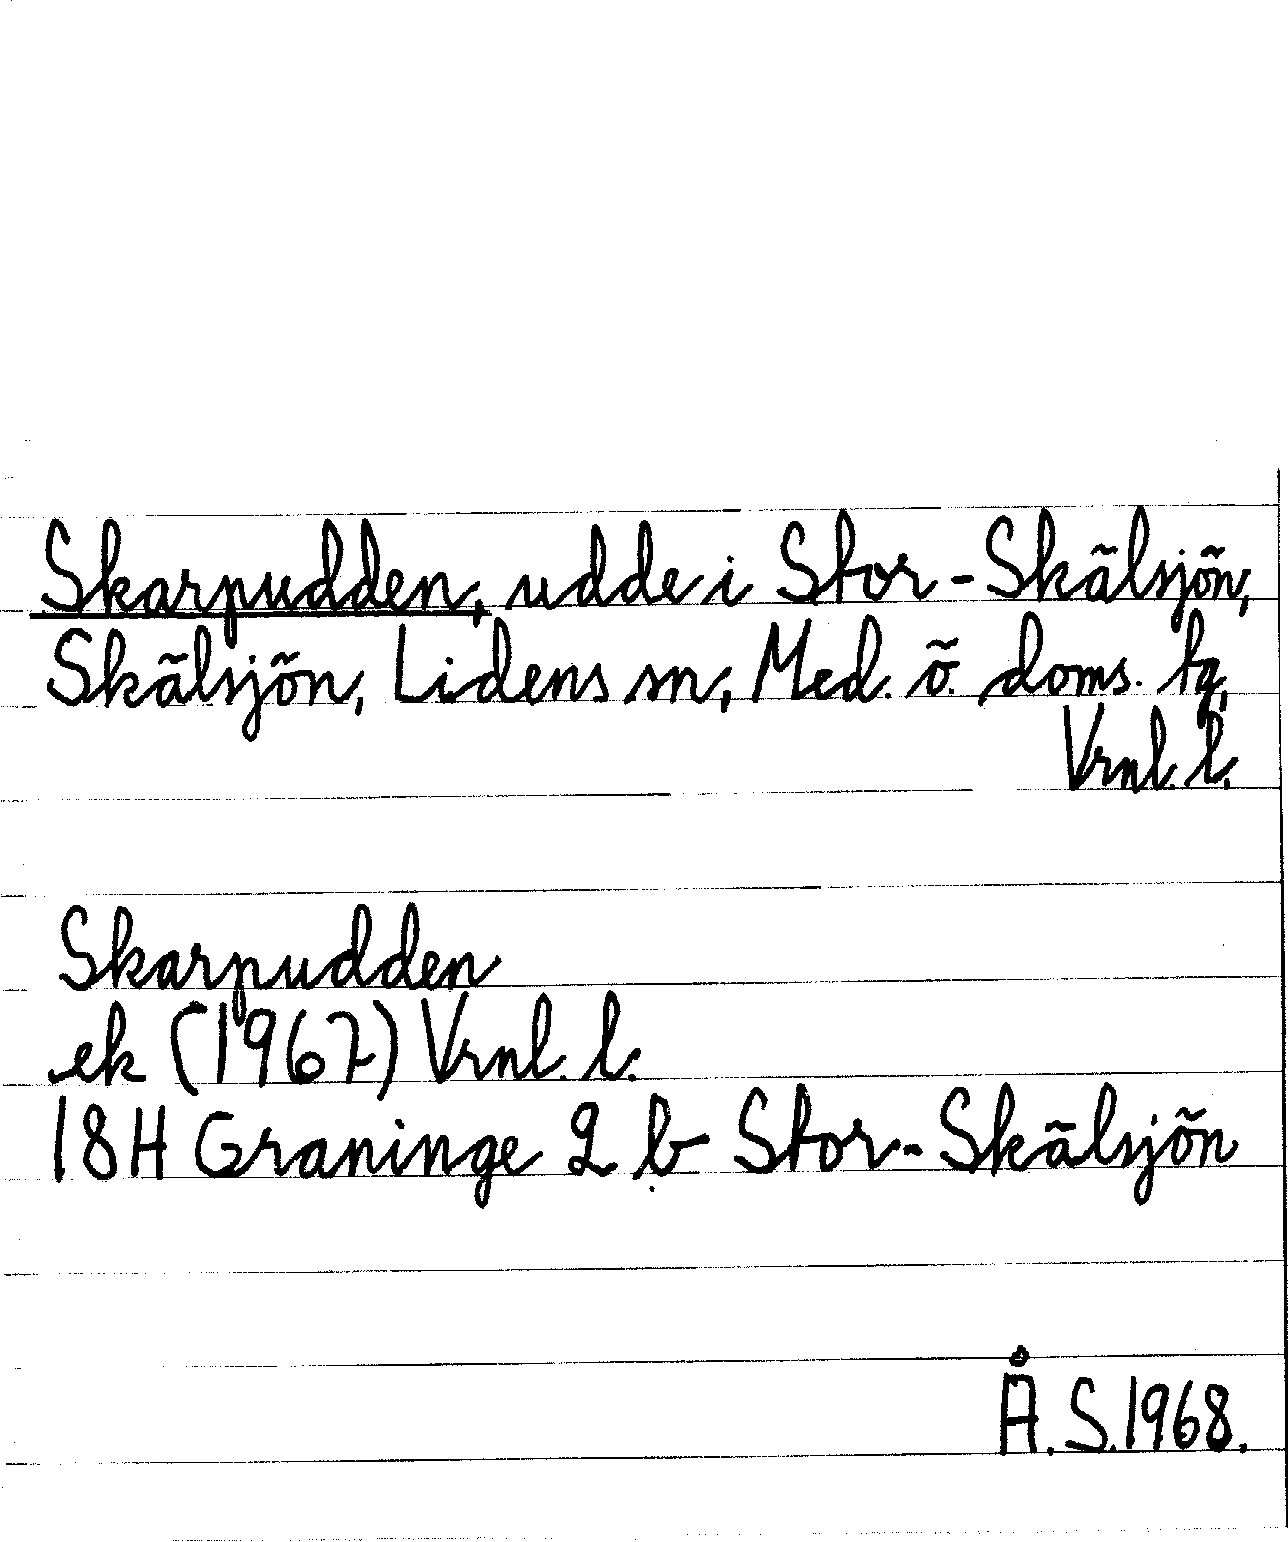 Skarpudden, udde i Stor-Skälsjön,
Skälsjön, Lidens sn, Med. ö. doms. tg,
Vrnl. l.
Skarpudden
ek (1967) Vrnl. l.
18H Graninge 2 b Stor-Skälsjön
Å.S.1968.